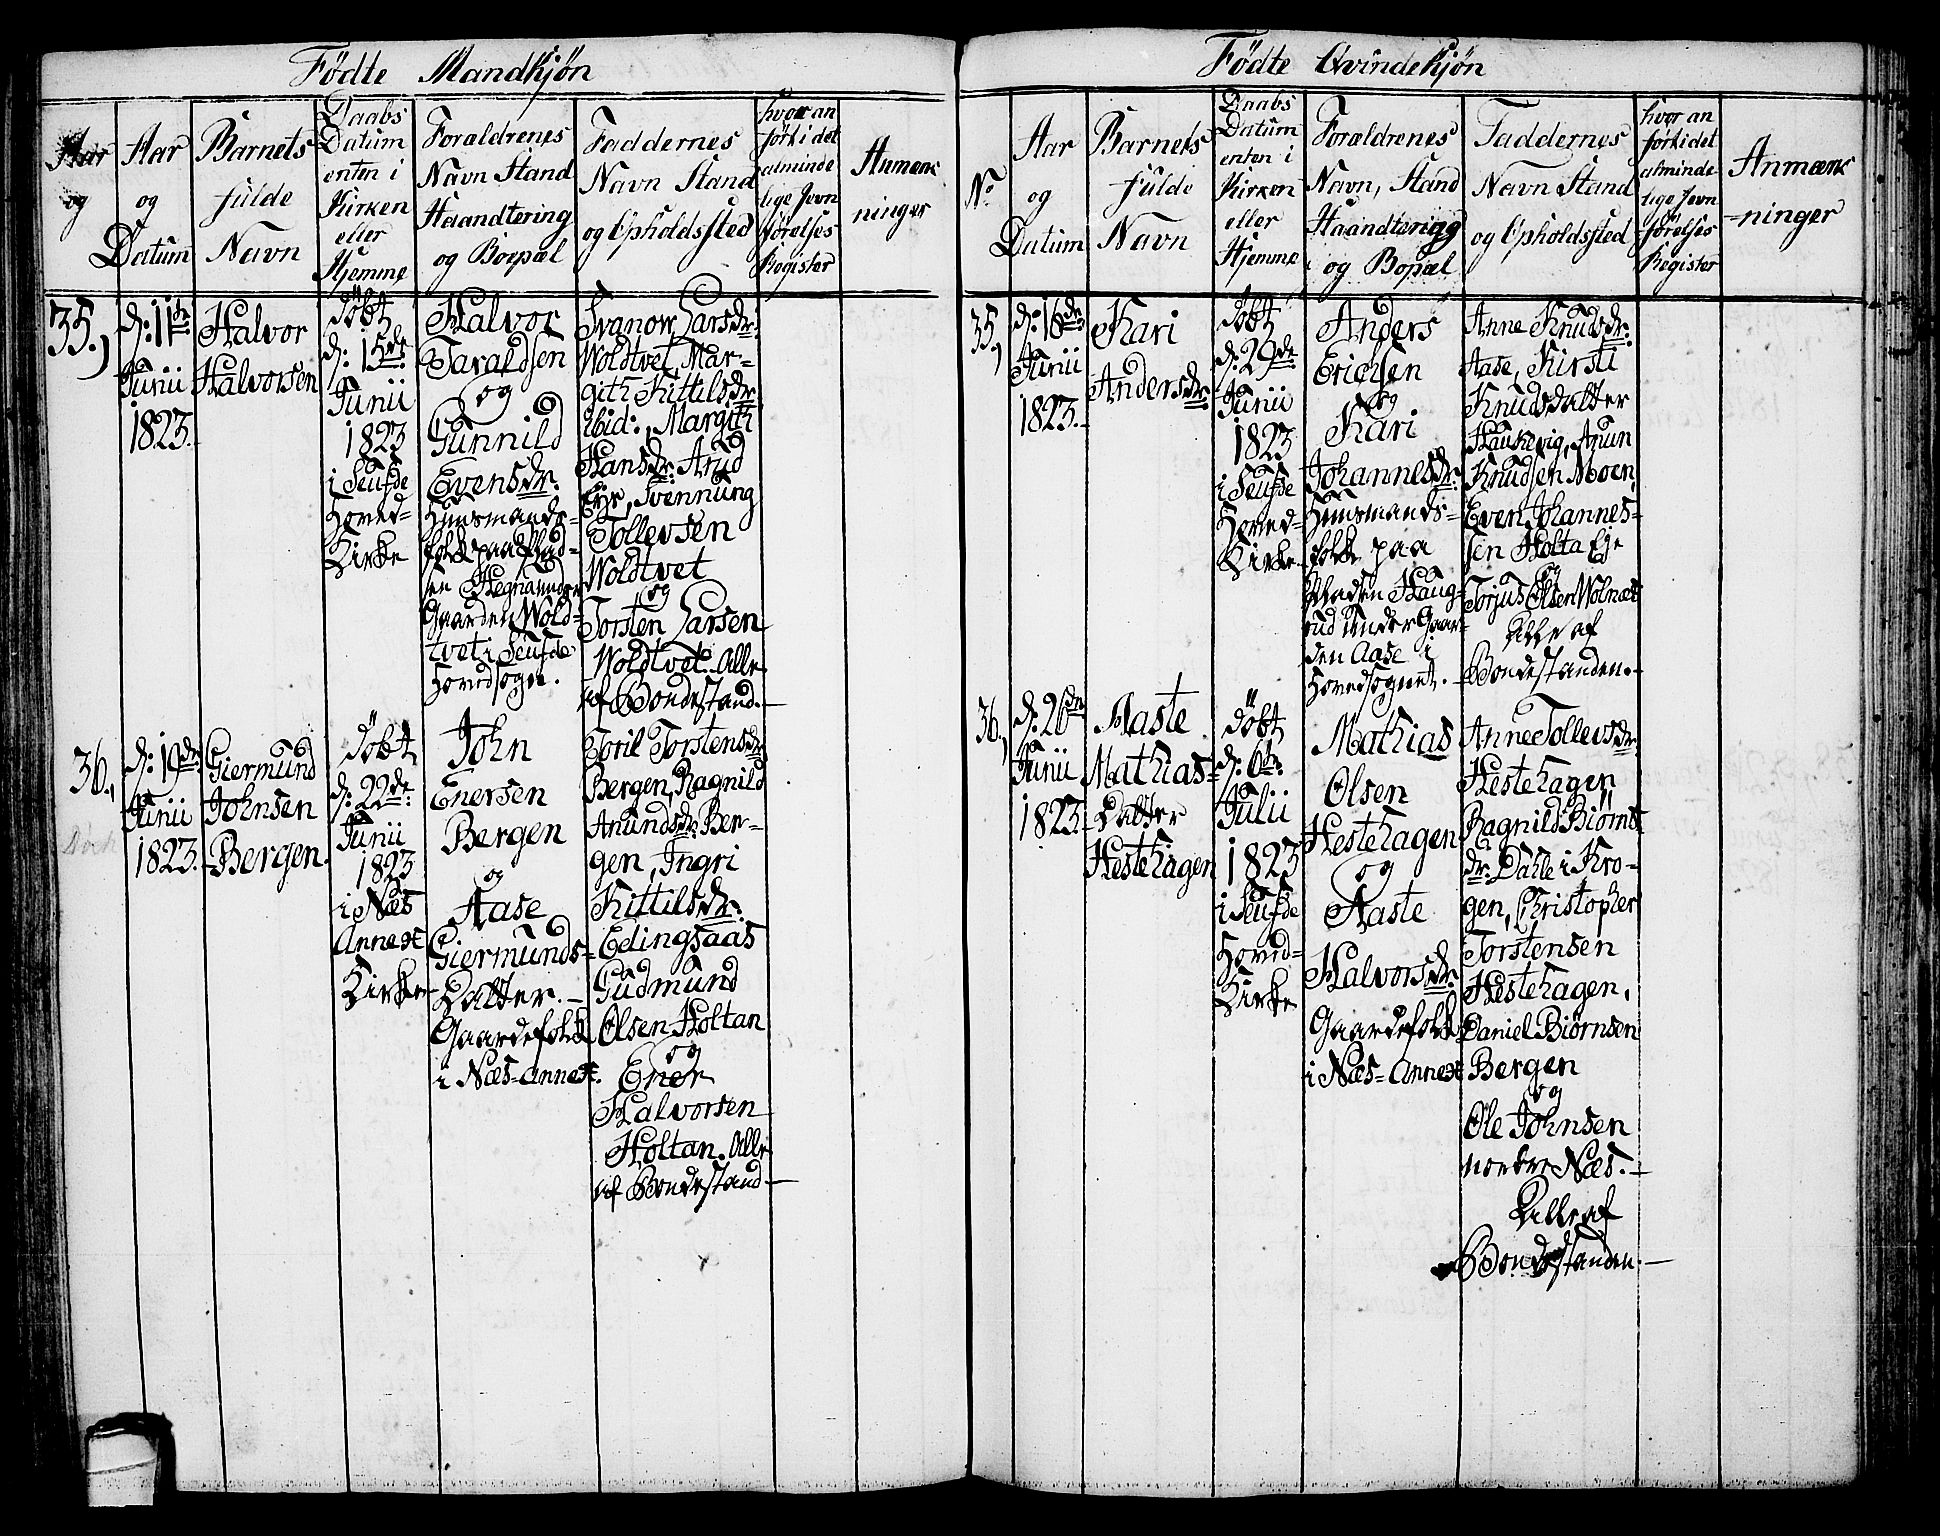 Födte Mandkjön
Aar
og
Aar
og
Datum
Barnets
fulde
Navn
Daabs
Datum
enten i
Kirken
eller
Hjemme
Foraldrenes
Navn Stand
Haandtering
og Boepæl
Faddernes
Navn Stand
og Opholdssted
hvor an
förk i det
alminde
lige Jevn
förelses
Register
Anmærk
ninger
35.)
d: 11te
Junii
1823.
Halvor
Halvorsen
Döbt
d: 15de
Junii
1823
i Seufde
Hoved-
Kirke
Halvor
Taraldsen
og
Gunnild
Evensdr.
Huusmands-
folk paa Plad-
sen Hegna under
Gaarden Wold-
tvet i Seufde
Hovedsogn.
Svanow Larsdr.
Woldtvet, Mar-
gith Kittilsdr.
ibid:, Margith
Hansdr. Arud
Eye, Svennung
Tollevsen
Woldtvet
og
Torsten Larsen
Woldtvet. Alle
af Bondestand.-
36.,
d: 19de
Junii
1823.
Giermund
Johnsen
Bergen.
Döbt
d: 22de
Junii
1823
i Næs
Annext
Kirke
John
Enersen
Bergen
og
Aase
Giermunds-
Datter.-
Gaardefolk
i Næs-Annext.
Toril Torstensdr
Bergen, Ragnild
Anundsdr. Ber-
gen, Ingri
Kittilsdr.
Edingsaas
Gudmund
Olsen Holtan
og
Ener
Halvorsen
Holtan. Alle
af Bondestand-
Födte Qvindekjön
No
Aar
og
Datum
Barnets
fulde
Navn
Daabs
Datum
enten i
Kirken
eller
Hjemme
Forældrenes
Navn, Stand
Haandtering
og Bopæl
Faddernes
Navn Stand
og Opholdssted
hvor an
förk i det
alminde
lige Jevn
förelses
Register
Anmærk
-ninger
35.)
d: 16de
Junii
1823.
Kari
Andersdr.
Döbt
d: 29de
Junii
1823
i Seufde
Hoved-
Kirke
Anders
Erichsen
og
Kari
Johannesdr.
Huusmands-
folk paa
Pladsen Haug-
rud under Gaar-
den Aase i
Hovedsognet.
Anne Knudsdr.
Aase, Kirsti
Knudsdatter
Haukevig, Anun
Knudsen Moen,
Even Johannes-
sen Holta Eje
og
Torjus Olsen Wolnæs
Alle af
Bondestanden.-
36.,
d: 26de
Junii
1823.
Aaste
Mathias-
Datter
Hestehagen
Döbt
d: 6te
Julii
1823
i Seufde
Hoved-
Kirke
Mathias
Olsen
Hestehagen
og
Aaste
Halvorsdr.
Gaardefolk
i Næs-Annext
Anne Tollevsdr.
Hestehagen
Ragnild Biörns-
dr. Dahle i Kro-
gen, Christopher
Torstensen
Hestehagen,
Daniel Biørnsen
Bergen
og
Ole Johnsen
nordre Næs.-
Alle af
Bondestanden.-